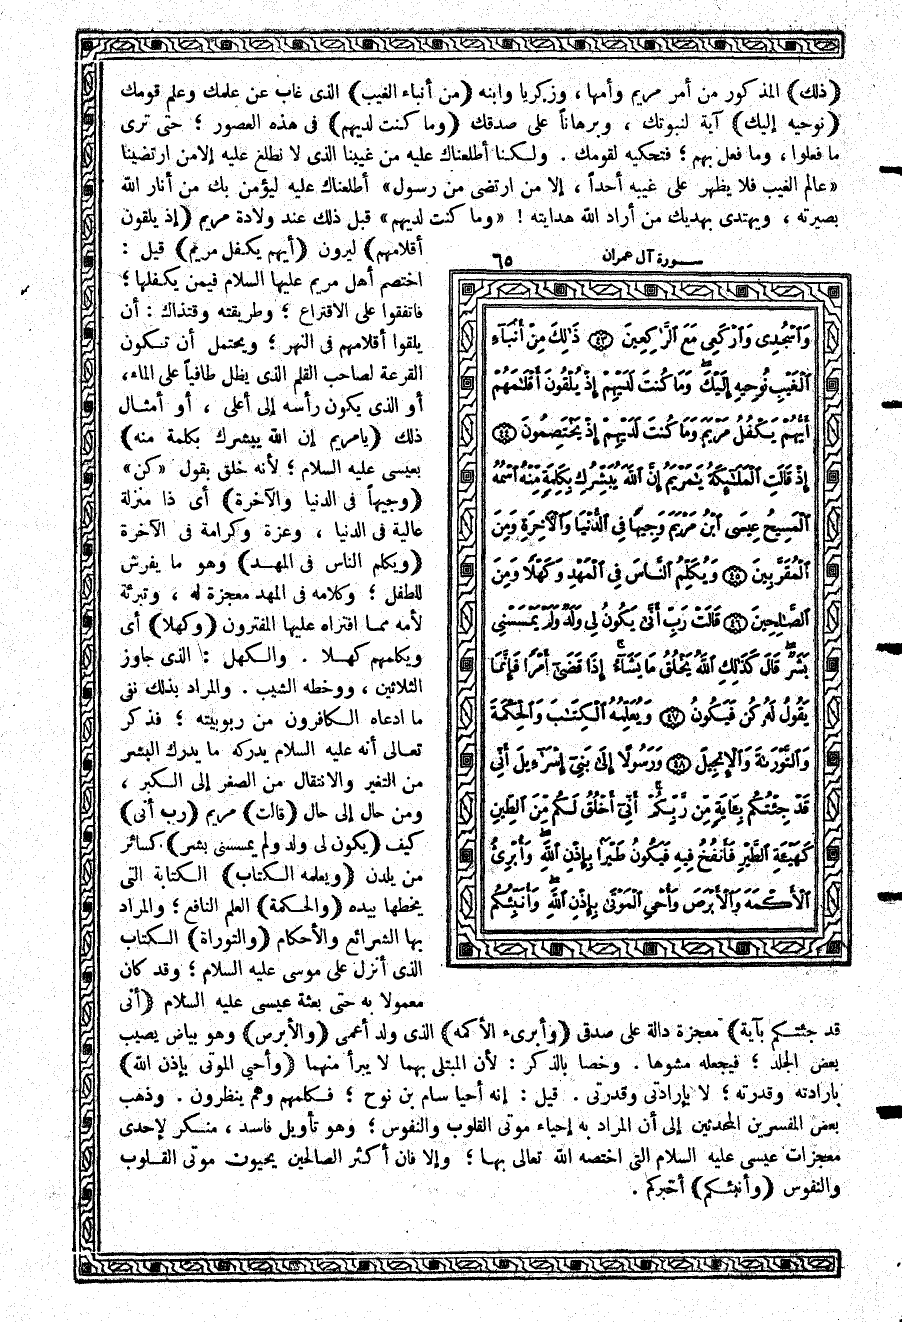 (ذلك) المذكور من أمر مريم وأمها ، وزكريا وابنه (من أنباء الغيب) الذى غاب عن علمك وعلم قومك
(نوحيه إليك) آية لنبوتك ، وبرهاناً على صدقك (وما كنت لديهم) فى هذه العصور ؛ حتى ترى
ما فعلوا ، وما فعل بهم ؛ فتحكيه لقومك . ولكنا أطلعناك عليه من غيبنا الذى لا نطلع عليه إلا من ارتضينا
«عالم الغيب فلا يظهر على غيبه أحداً ، إلا من ارتضى من رسول» أطلعناك عليه ليؤمن بك من أنار الله
بصيرته ، ويهتدى بهديك من أراد الله هدايته ! «وما كنت لديهم» قبل ذلك عند ولادة مريم (إذ يلقون
أقلامهم) ليرون (أيهم يكفل مريم) قيل :
اختصم أهل مريم عليها السلام فيمن يكفلها ؛
فاتفقوا على الاقتراع ؛ وطريقته وقتذاك : أن
يلقوا أقلامهم فى النهر ؛ ويحتمل أن تكون
القرعة لصاحب القلم الذى يظل طافياً على الماء ،
أو الذى يكون رأسه إلى أعلى ، أو أمثال
ذلك (يامريم إن الله يبشرك بكلمة منه)
بعيسى عليه السلام ؛ لأنه خلق بقول «كن»
(وجيهاً فى الدنيا والآخرة) أى ذا منزلة
عالية فى الدنيا ، وعزة وكرامة فى الآخرة
(ويكلم الناس فى المهد) وهو ما يفرش
للطفل ؛ وكلامه فى المهد معجزة له ، وتبرئة
لأمه مما افتراه عليها المفترون (وكهلا) أى
ويكلمهم كهلا . والكهل : الذى جاوز
الثلاثين ، ووخطه الشيب . والمراد بذلك نفى
ما ادعاه الكافرون من ربوبيته ؛ فذكر
تعالى أنه عليه السلام يدركه ما يدرك البشر
من التغير والانتقال من الصغر إلى الكبر ،
ومن حال إلى حال (قالت) مريم (رب أنى)
كيف (يكون لى ولد ولم يمسسنى بشر) كسائر
من يلدن (ويعلمه الكتاب) الكتابة التى
يخطها بيده (والحكمة) العلم النافع ؛ والمراد
بها الشرائع والأحكام (والتوراة) الكتاب
الذى أنزل على موسى عليه السلام ؛ وقد كان
معمولا به حتى بعثة عيسى عليه السلام (أنى
سورة آل عمران ٦٥
وَاسْجُدِى وَارْكَعِى مَعَ الرَّاكِعِينَ ﴿٤٣﴾ ذَٰلِكَ مِنْ أَنْبَآءِ
الْغَيْبِ نُوحِيهِ إِلَيْكَ وَمَا كُنتَ لَدَيْهِمْ إِذْ يُلْقُونَ أَقْلَٰمَهُمْ
أَيُّهُمْ يَكْفُلُ مَرْيَمَ وَمَا كُنتَ لَدَيْهِمْ إِذْ يَخْتَصِمُونَ ﴿٤٤﴾
إِذْ قَالَتِ الْمَلَٰٓئِكَةُ يَٰمَرْيَمُ إِنَّ اللَّهَ يُبَشِّرُكِ بِكَلِمَةٍ مِّنْهُ اسْمُهُ
الْمَسِيحُ عِيسَى ابْنُ مَرْيَمَ وَجِيهًا فِى الدُّنْيَا وَالْآخِرَةِ وَمِنَ
الْمُقَرَّبِينَ ﴿٤٥﴾ وَيُكَلِّمُ النَّاسَ فِى الْمَهْدِ وَكَهْلًا وَمِنَ
الصَّٰلِحِينَ ﴿٤٦﴾ قَالَتْ رَبِّ أَنَّىٰ يَكُونُ لِى وَلَدٌ وَلَمْ يَمْسَسْنِى
بَشَرٌ قَالَ كَذَٰلِكِ اللَّهُ يَخْلُقُ مَا يَشَآءُ إِذَا قَضَىٰٓ أَمْرًا فَإِنَّمَا
يَقُولُ لَهُۥ كُن فَيَكُونُ ﴿٤٧﴾ وَيُعَلِّمُهُ الْكِتَٰبَ وَالْحِكْمَةَ
وَالتَّوْرَىٰةَ وَالْإِنجِيلَ ﴿٤٨﴾ وَرَسُولًا إِلَىٰ بَنِىٓ إِسْرَٰٓءِيلَ أَنِّى
قَدْ جِئْتُكُم بِـَٔايَةٍ مِّن رَّبِّكُمْ أَنِّىٓ أَخْلُقُ لَكُم مِّنَ الطِّينِ
كَهَيْـَٔةِ الطَّيْرِ فَأَنفُخُ فِيهِ فَيَكُونُ طَيْرًا بِإِذْنِ اللَّهِ وَأُبْرِئُ
الْأَكْمَهَ وَالْأَبْرَصَ وَأُحْىِ الْمَوْتَىٰ بِإِذْنِ اللَّهِ وَأُنَبِّئُكُم
قد جئتكم بآية) معجزة دالة على صدقى (وأبرىء الأكمه) الذى ولد أعمى (والأبرص) وهو بياض يصيب
بعض الجلد ؛ فيجعله مشوها . وخصا بالذكر : لأن المبتلى بهما لا يبرأ منهما (وأحيي الموتى بإذن الله)
بارادته وقدرته ؛ لا بإرادتى وقدرتى . قيل : إنه أحيا سام بن نوح ؛ فكلمهم وهم ينظرون . وذهب
بعض المفسرين المحدثين إلى أن المراد به إحياء موتى القلوب والنفوس ؛ وهو تأويل فاسد ، منكر لإحدى
معجزات عيسى عليه السلام التى اختصه الله تعالى بها ؛ وإلا فان أكثر الصالحين يحيون موتى القلوب
والنفوس (وأنبئكم) أخبركم .